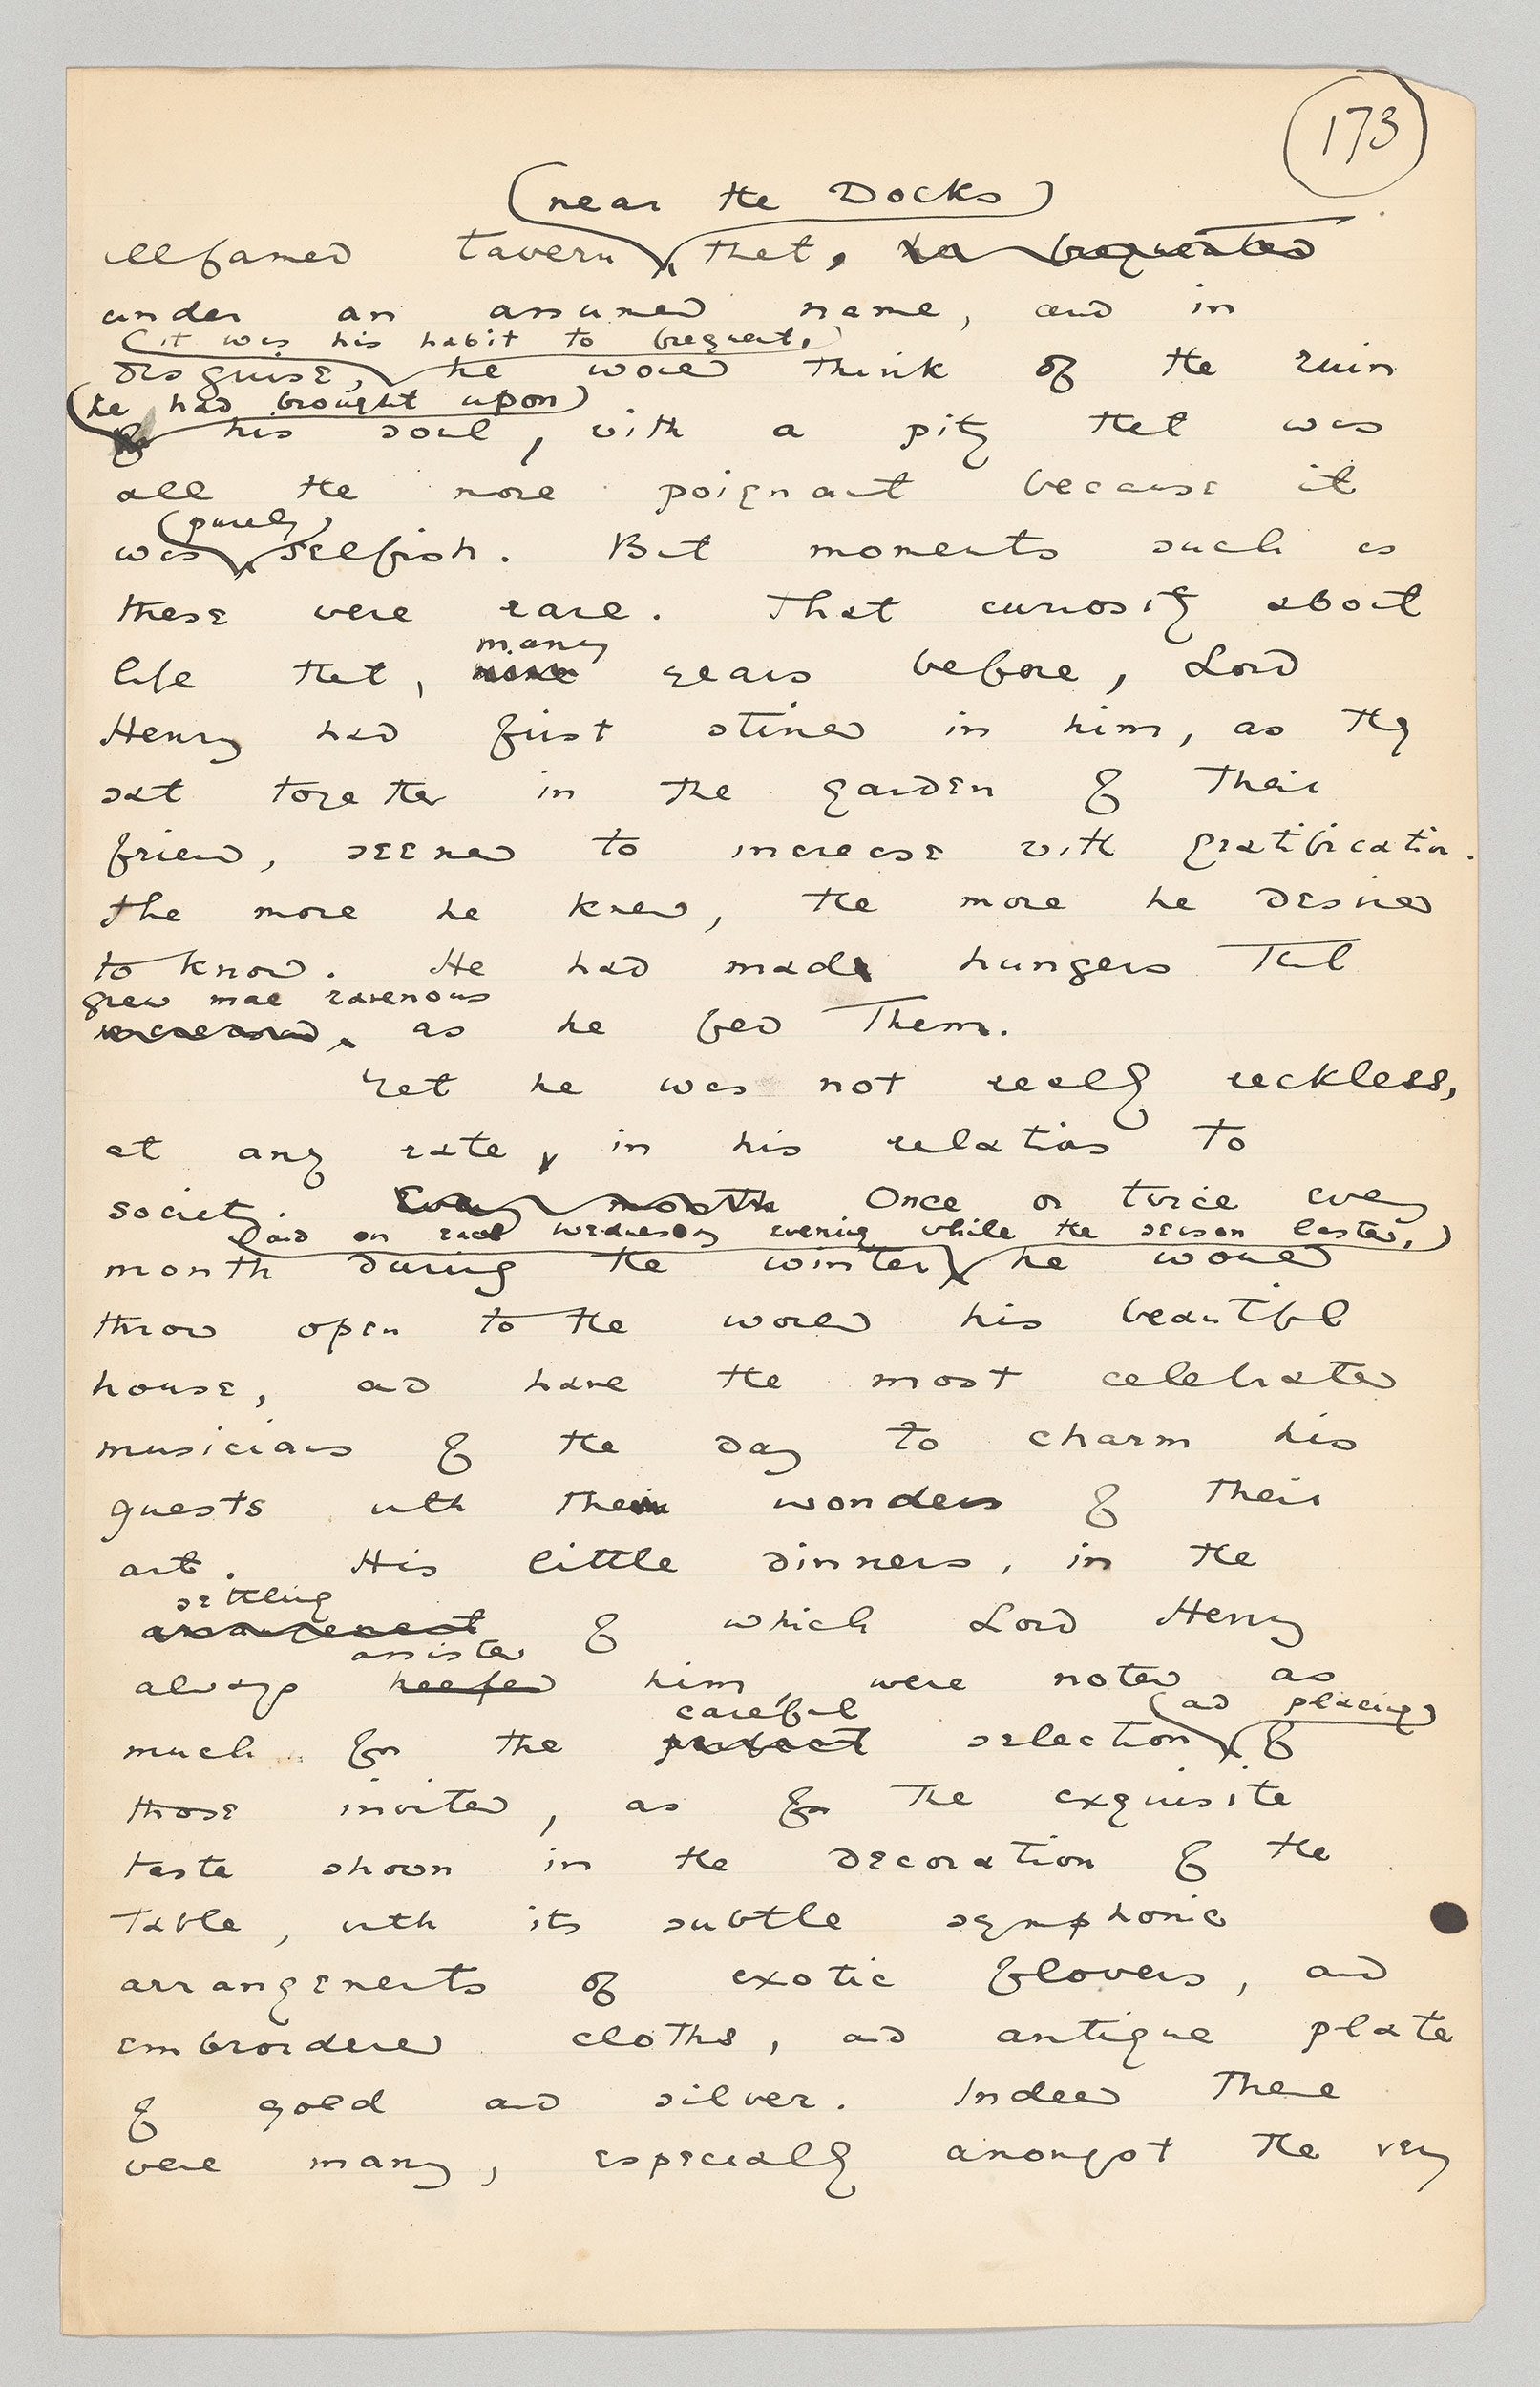 173
(near the Docks)
illfamed tavern that, he frequented
under an assumed name, and in
(it was his habit to frequent,)
disguise, he would think of the ruin
(he had brought upon)
of his soul, with a pity that was
all the more poignant because it
(purely)
was selfish. But moments such as
these were rare. That curiosity about
many
life that, years before, Lord
Henry had first stirred in him, as they
sat together in the garden of their
friend, seemed to increase with gratification.
The more he knew, the more he desired
to know. He had mad hungers that
grew more ravenous
increased, as he fed them.
Yet he was not really reckless,
at any rate, in his relations to
society. Every month Once or twice every
(and on each Wednesday evening while the season lasted,)
month during the winter he would
throw open to the world his beautiful
house, and have the most celebrated
musicians of the day to charm his
guests with the wonders of their
art. His little dinners, in the
settling
arrangement of which Lord Henry
assisted
always helped him, were noted as
careful (and placing)
much for the perfect selection of
those invited, as for the exquisite
taste shown in the decoration of the
table, with its subtle symphonic
arrangements of exotic flowers, and
embroidered cloths, and antique plate
of gold and silver. Indeed there
were many, especially amongst the very